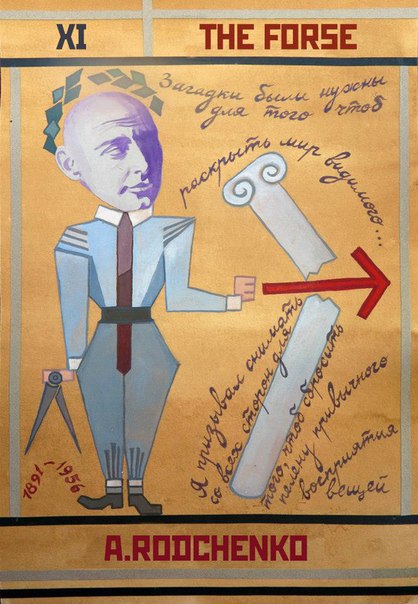 XI
THE FORSE
Загадки были нужны
для того чтоб
раскрыть мир видимого...
Я призывал снимать
со всех сторон для
того, чтоб сбросить
пелену привычного
восприятия
вещей
1891-1956
A.RODCHENKO